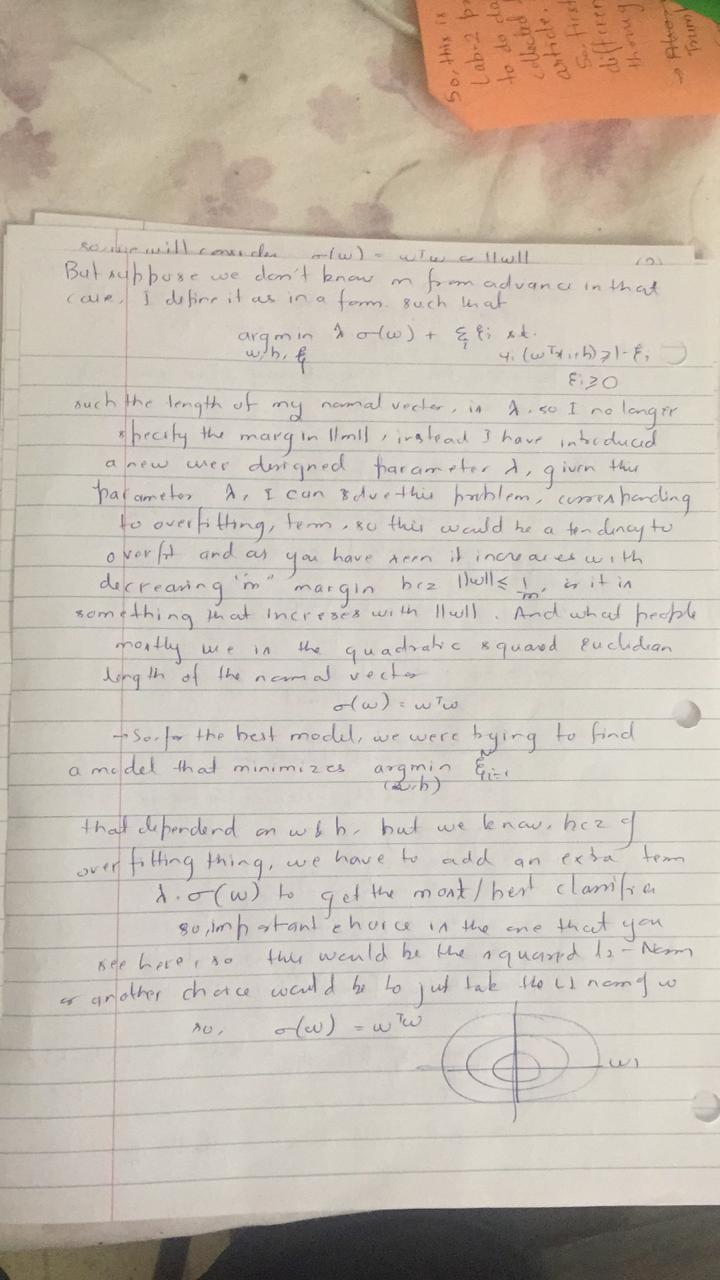 So, this is
Lab-2 p
to do da
collected
article.
So, first
differen
throug
→
Trum
so we will consider σ(w) = wᵀw or ||w||
(2)
But suppose we don't know m from advance in that
case, I define it as in a form. such that
argmin λ σ(w) + Σ ξi s.t.
w, b, ξ yi (wᵀxi + b) ≥ 1 - ξi
ξi ≥ 0
such the length of my normal vector, is λ. so I no longer
specify the margin ||m||, instead I have introduced
a new user designed parameter λ, given this
parameter λ, I can solve this problem, corresponding
to overfitting, term, so this would be a tendency to
overfit and as you have seen it increases with
decreasing "m" margin bcz ||w|| ≤ 1/m, is it is
something that increses with ||w||. And what people
mostly use is the quadratic squared Euclidian
length of the normal vector
σ(w) = wᵀw
→ So, for the best model, we were trying to find
a model that minimizes argmin ξi=1
(w,b) N
that dependend on w & b, but we know, bcz of
over fitting thing, we have to add an extra term
λ.σ(w) to get the most/best classifier
so, important choice is the one that you
see here, so this would be the squared l2-Norm
or another choice would be to just take the L1 norm of w
so, σ(w) = wᵀw
w1